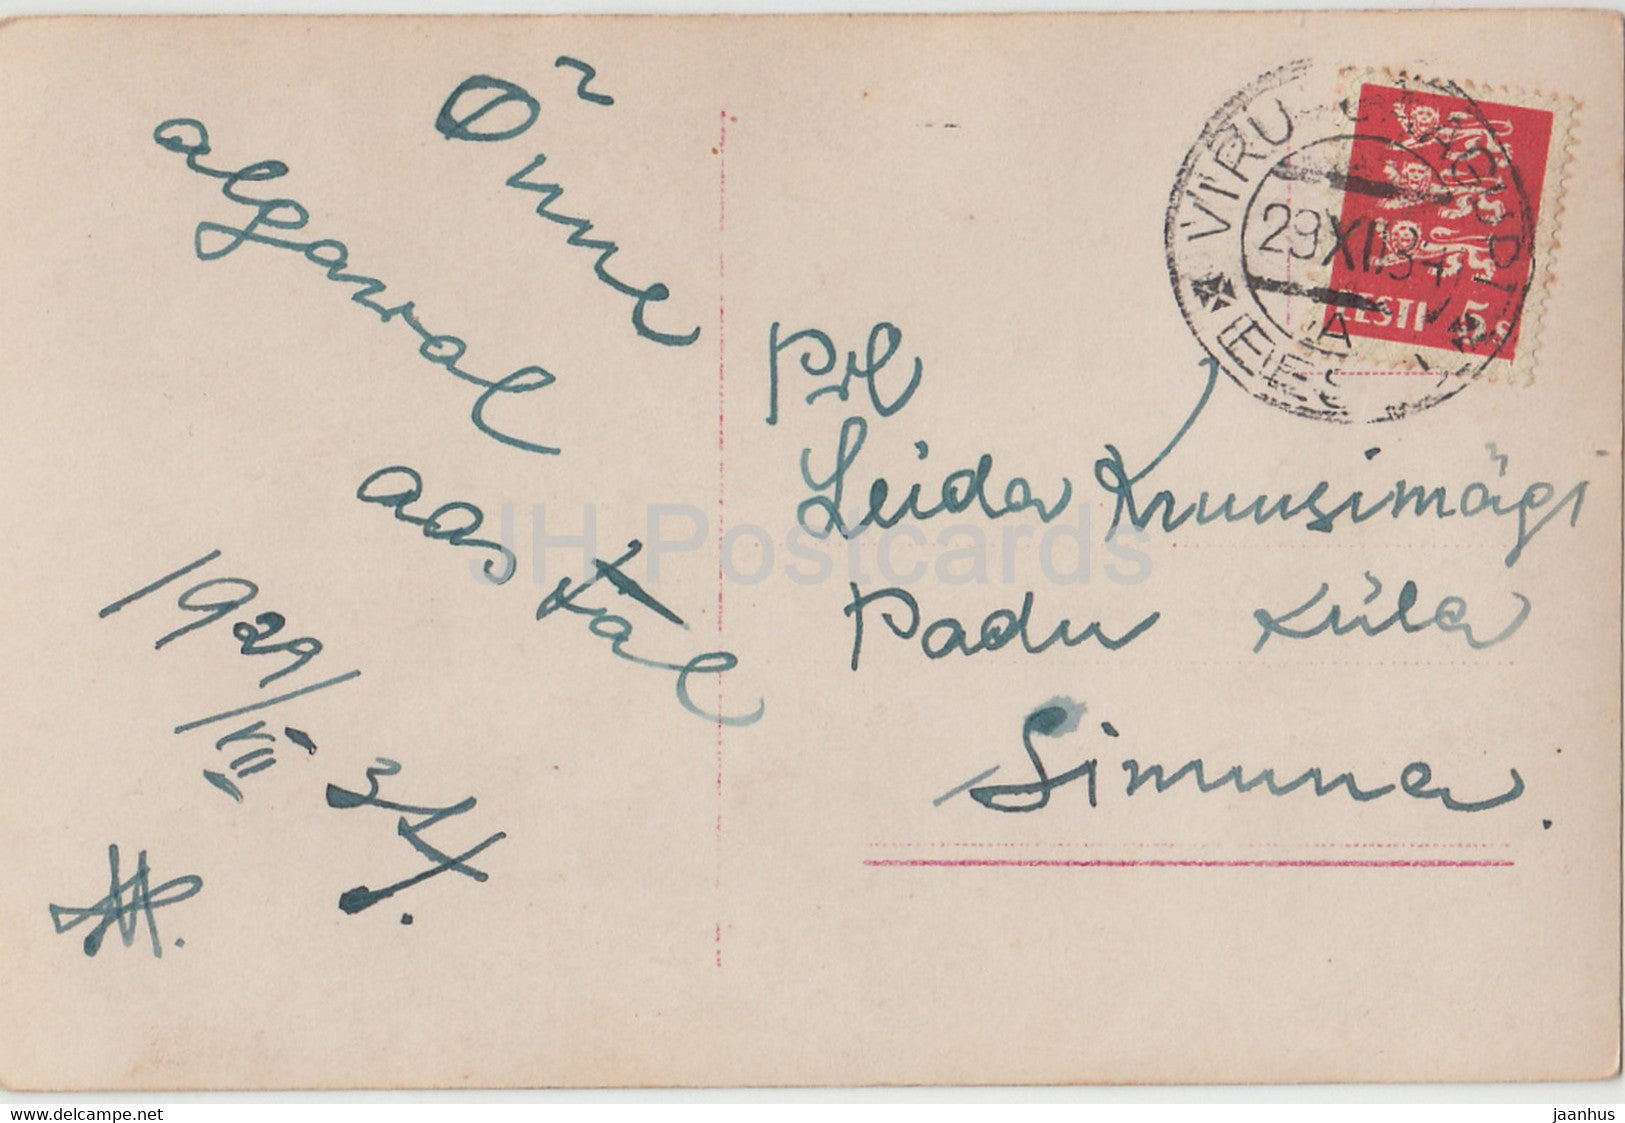 Õnne
algaval
aastal
1929/XII 34.
Prl
Leida Kruusimägi
Padu küla
Simuna.
VIRU-JAAGUPI
29 XII 34
A
EESTI
EESTI 5 s
JH Postcards
www.delcampe.net
jaanhus